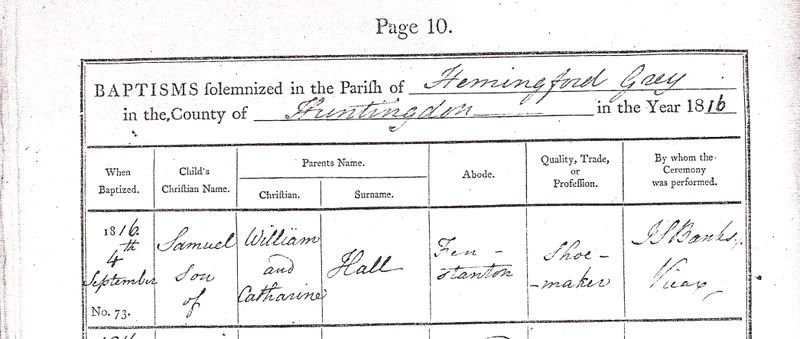 Page 10.
BAPTISMS ſolemnized in the Pariſh of Hemingford Grey
in the County of Huntingdon in the Year 1816
When Baptized.
Child's Chriſtian Name.
Parents Name.
Chriſtian.
Surname.
Abode.
Quality, Trade, or Profeſſion.
By whom the Ceremony was performed.
1816.
4th
September
No. 73.
Samuel
Son
of
William
and
Catharine
Hall
Fen-
stanton
Shoe-
-maker
Banks,
Vicar